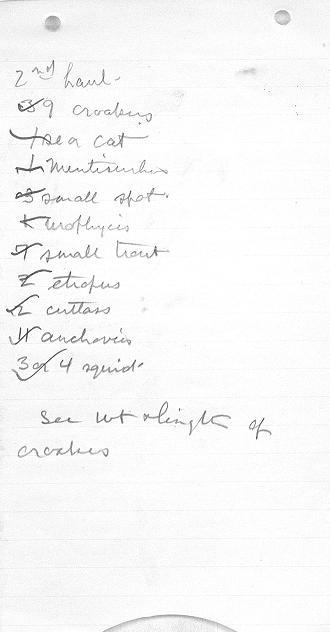 2nd haul.
39 croakers
1 sea cat
1 Menticirrhus
3 small spot.
1 urophycis
1 small trout
2 etropus
2 cutlass
11 anchovies
3 or 4 squid.
See wt & length of
croakers